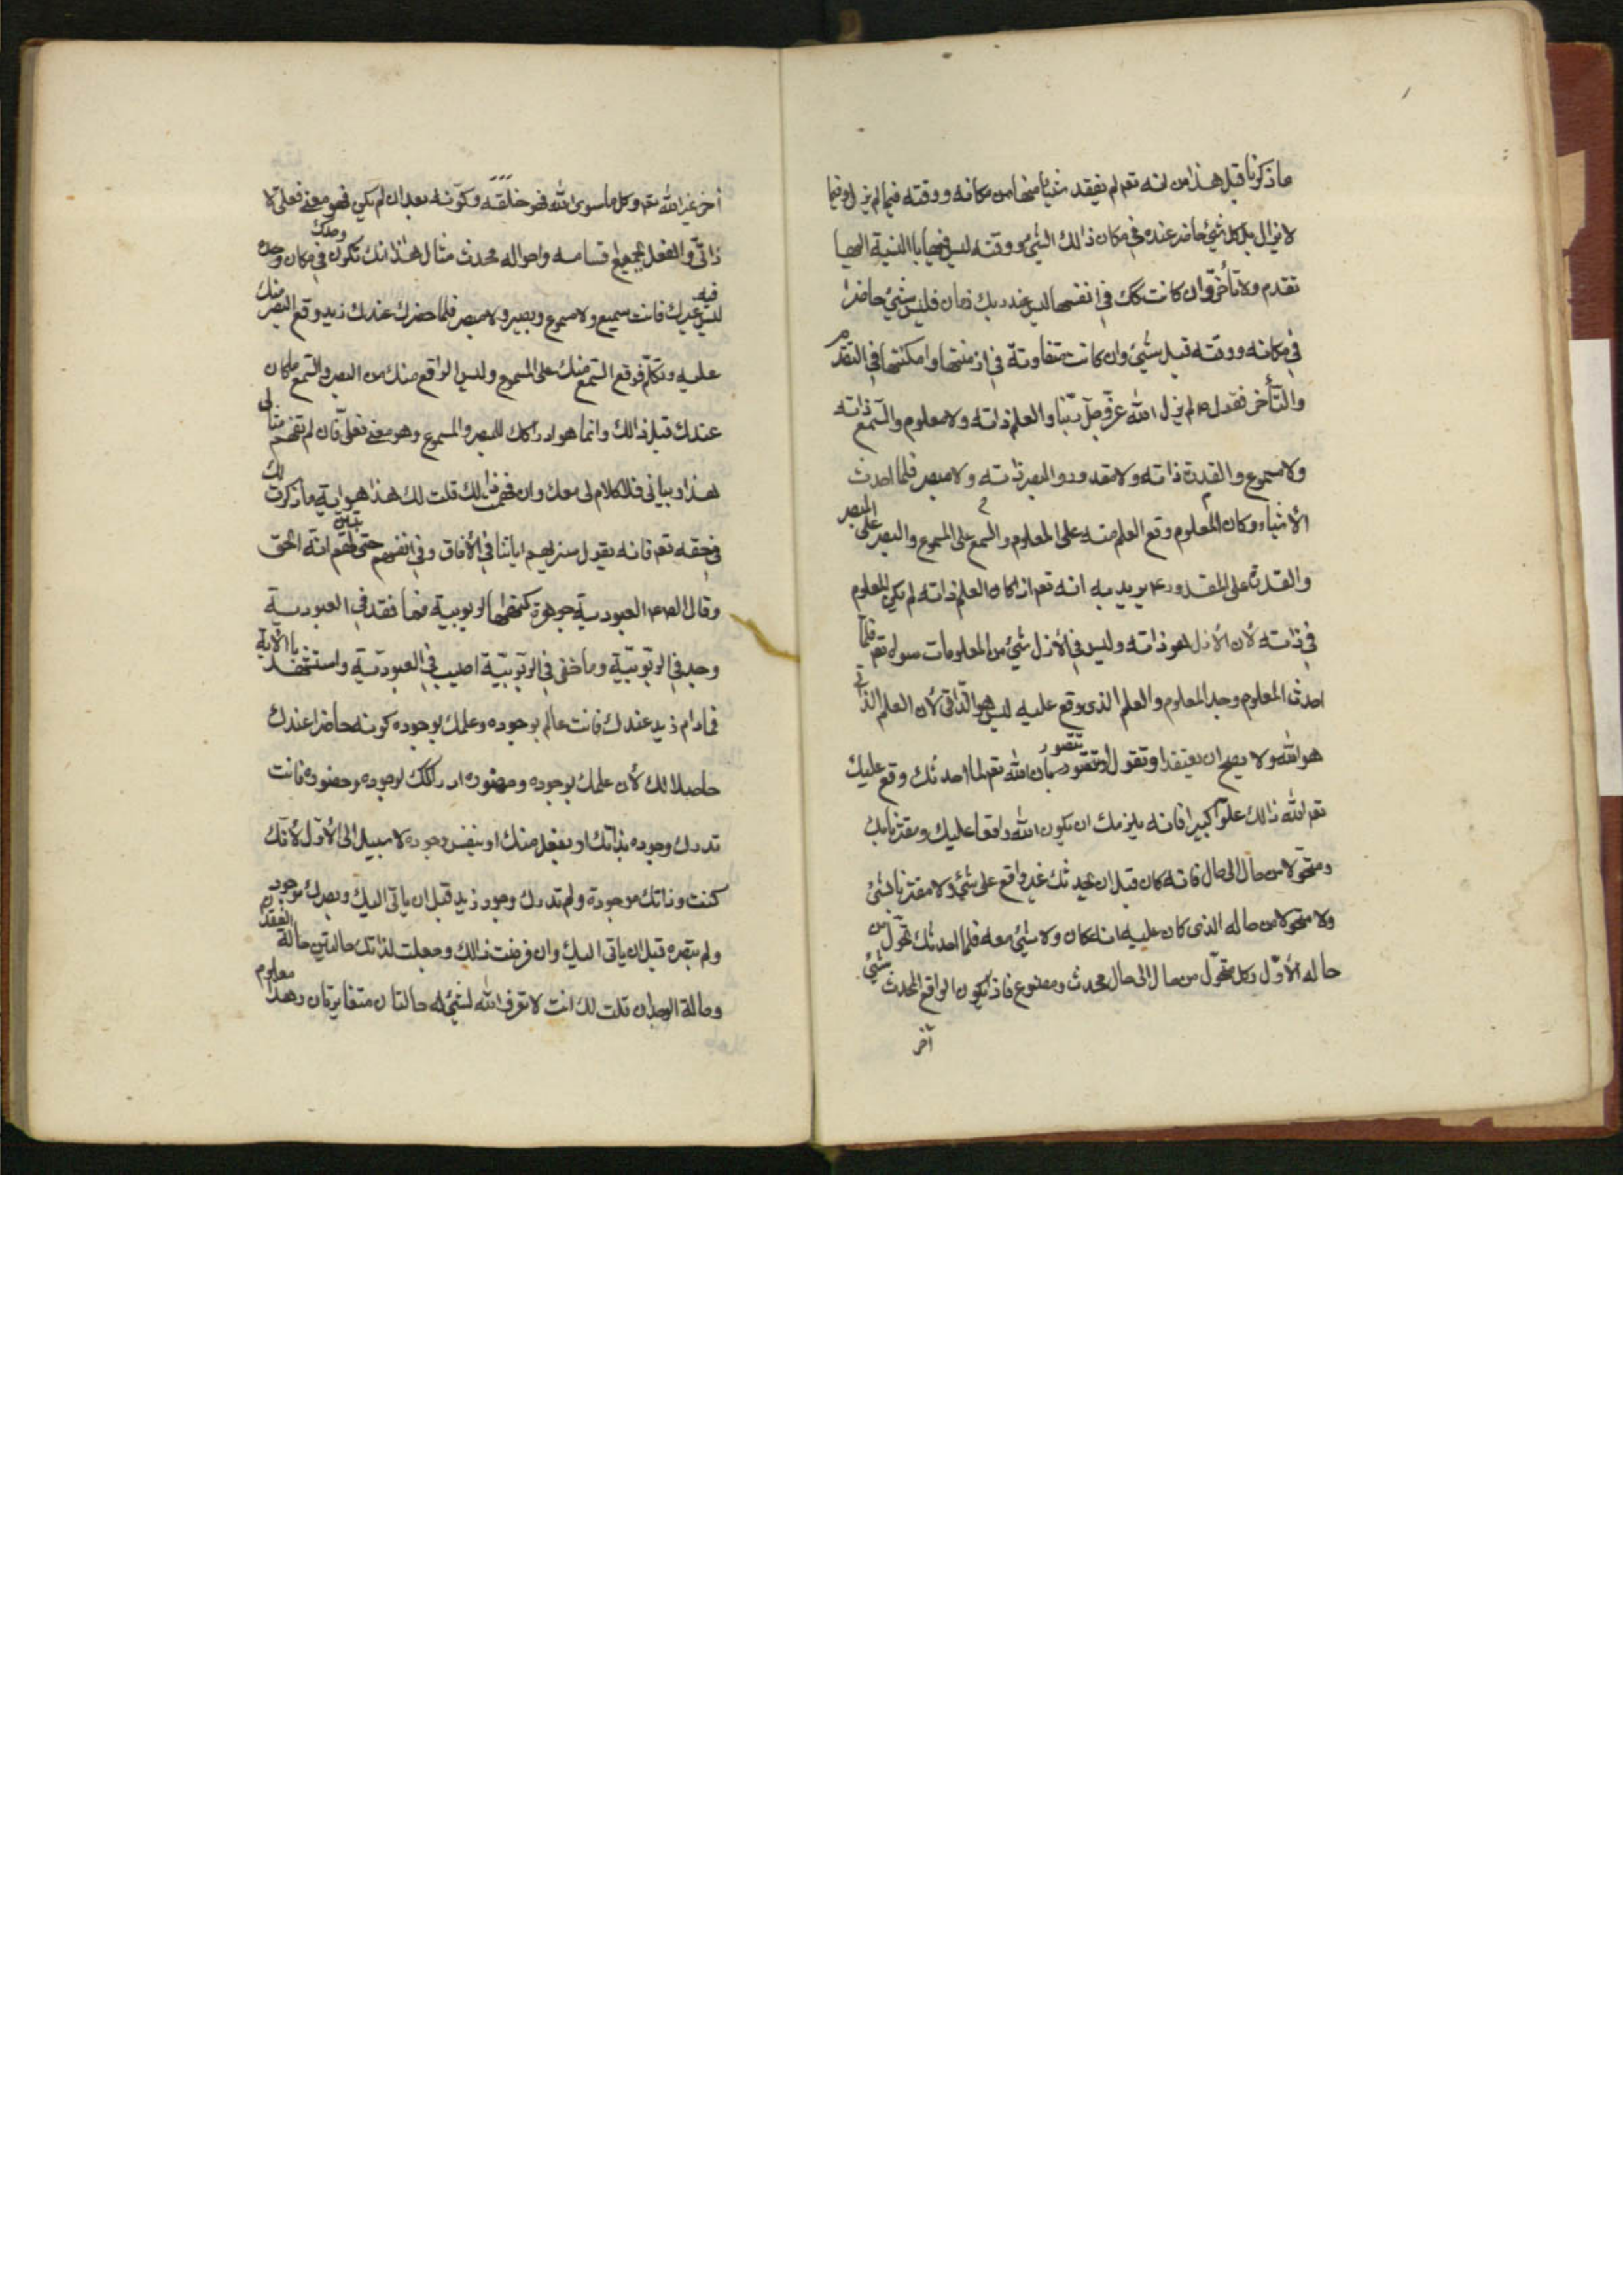 ما ذكرنا قبل هذا من انه تعم لم يفقد شيئا منها من مكانه ووقته فيما لم يزل وفيما
لا يزال بل كل شيئ حاضر عنده في مكان ذالك الشيئ ووقته ليس فيها بالنسبة اليها
تقدم ولا تأخّر وان كانت كك في انفسها ليس عند ربك زمان فليس شيئ حاضرا
في مكانه ووقته قبل شيئ وان كانت متفاوتة في ازمنتها وامكنتها في التقدم
والتأخر فقوله لم يزل الله عزّ وجلّ ربّنا والعلم ذاته ولا معلوم والسّمع ذاته
ولا مسموع والقدرة ذاته ولا مقدور والبصر ذاته ولا مبصر فلما احدث
الأشياء وكان المعلوم وقع العلم منه على المعلوم والسمع على المسموع والبصر على المبصر
والقدرة على المقدور يريد به انه تعم اذ كان العلم ذاته لم يكن المعلوم
في ذاته لأن الأزل هو ذاته وليس في الأزل شيئ من المعلومات سواه تعم فلمّا
احدث المعلوم وجد المعلوم والعلم الذى وقع عليه ليس هو الذّاتى لأن العلم الذّاتى
هو الله ولا يصح ان يعتقد او تقول او تتصور بان الله تعم لما احدثك وقع عليك
تعم الله ذالك علوّا كبيرا فانه يلزمك ان يكون الله واقعا عليك ومقترنا بك
ومتحوّلا من حال الى حال فانه كان قبل ان يحدثك غير واقع على شيئ ولا مقترنا بشيئ
ولا متحولا من حاله الذى كان عليه انه كان ولا شيئ معه فلما احدثك تحوّل من
حاله الأوّل وكل متحوّل من حال الى حال محدث ومصنوع فاذ يكون الواقع المحدث شيئ
آخر
آخر غير الله تعم وكل ما سوى الله فهو خلقه وكوّنه بعد ان لم يكن فهو معنى فعلىّ لا
ذاتىّ والفعل بجميع اقسامه واحواله محدث مثال هذا انك تكون في مكان وحدك
ليس فيه غيرك فانت سميع ولا مسموع وبصير ولا مبصر فلما حضرك عندك زيد وقع البصر منك
عليه وتكلّم فوقع السّمع منك على المسموع وليس الواقع منك من البصر والسّمع ما كان
عندك قبل ذالك وانما هو ادراكك للمبصر والمسموع وهو معنى فعلىّ فان لم تفهم مثالى
هذا وبيانى فلا كلام لى معك وان فهمت ذالك قلت لك هذا هو اية ما ذكرت لك
في حقه تعم فانه يقول سنريهم اياتنا في الأفاق وفي انفسهم حتى يتبين لهم انّه الحق
وقال الص العبودية جوهرة كنهها الربوبية فما فقد في العبودية
وجد في الرّبوبيّة وما خفى في الرّبوبيّة اصيب في العبوديّة واستشهد بالأية
فما دام زيد عندك فانت عالم بوجوده وعلمك بوجوده كونه حاضرا عندك
حاصلا لك لأن علمك بوجوده وحضوره ادراكك لوجوده وحضوره فانت
تدرك وجوده بذاتك او بفعل منك او بنفس وجوده لا سبيل الى الأوّل لأنّك
كنت وذاتك موجودة ولم تدرك وجود زيد قبل ان ياتى اليك وبصرك موجود
ولم تبصره قبل ان ياتى اليك وان فرضت ذالك وجعلت لذاتك حالتين حالة الفقدان
وحالة الوجدان قلت لك انت لا تعرف الله لشيئ له حالتان متغايرتان وهذا معلوم